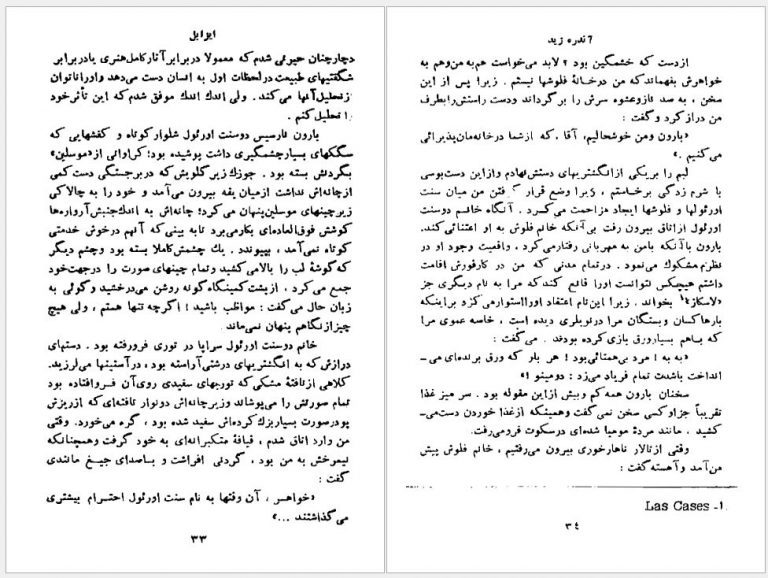 ایزابل
دچارچنان حیرتی شدم که معمولا دربرابر آثار کامل هنری یادربرابر
شگفتیهای طبیعت درلحظات اول به انسان دست می‌دهد واورا ناتوان
ازتحلیل آنها می‌کند. ولی اندک اندک موفق شدم که این تأثر خود
را تحلیل کنم.
بارون نارسیس دوسنت اورئول شلوار کوتاه و کفشهایی که
سگکهای بسیار چشمگیری داشت پوشیده بود؛ کراواتی از «موسلین»
بگردنش بسته بود. جوزک زیر گلویش که دربرجستگی دست کمی
از چانه‌اش نداشت ازمیان یقه بیرون می‌آمد و خود را به چالاکی
زیر چینهای موسلین پنهان می‌کرد؛ چانه‌اش به اندک جنبش آرواره‌ها
کوشش فوق‌العاده‌ای بکار می‌برد تا به بینی که آنهم درخوش خدمتی
کوتاه نمی‌آمد، بپیوندد. یک چشمش کاملا بسته بود وچشم دیگر
که گوشهٔ لب را بالا می‌کشید وتمام چینهای صورت را درجهت خود
جمع می‌کرد، ازپشت کمینگاه گونه روشن می‌درخشید وگوئی به
زبان حال می‌گفت: مواظب باشید! اگرچه تنها هستم، ولی هیچ
چیز ازنگاهم پنهان نمی‌ماند.
خانم دوسنت اورئول سراپا در توری فرورفته بود. دستهای
درازش که به انگشتریهای درشتی آراسته بود، درآستینها می‌لرزید.
کلاهی ازتافتهٔ مشکی که توریهای سفیدی روی آن فروافتاده بود
تمام صورتش را می‌پوشاند وزیر چانه‌اش دونوار تافته‌ای که ازریزش
پودر صورت بسیار بزک کرده‌اش سفید شده بود، گره می‌خورد. وقتی
من وارد اتاق شدم، قیافهٔ متکبرانه‌ای به خود گرفت وهمچنانکه
نیمرخش به من بود، گردنی افراشت و باصدای جیغ مانندی
گفت:
«خواهر، آن وقتها به نام سنت اورئول احترام بیشتری
می‌گذاشتند ...»
۳۳
آندره ژید
ازدست که خشمگین بود؟ لابد می‌خواست هم به من وهم به
خواهرش بفهماند که من درخانهٔ فلوشها نیستم. زیرا پس از این
سخن، به صد ناز وعشوه سرش را برگرداند ودست راستش رابطرف
من دراز کرد وگفت:
«بارون ومن خوشحالیم، آقا، که ازشما درخانه‌مان پذیرائی
می‌کنیم.»
لبم را بریکی از انگشتریهای دستش نهادم وازاین دست بوسی
با شرم زدگی برخاستم، زیرا وضع قرار گرفتن من میان سنت
اورئولها و فلوشها ایجاد مزاحمت می‌کرد. آنگاه خانم دوسنت
اورئول ازاتاق بیرون رفت بی‌آنکه خانم فلوش به او اعتنائی کند.
بارون با آنکه بامن به مهربانی رفتار می‌کرد، واقعیت وجود او در
نظرم مشکوک می‌نمود. درتمام مدتی که من در کارفورش اقامت
داشتم هیچکس نتوانست اورا قانع کند که مرا به نام دیگری جز
«لاسکاز»۱ بخواند. زیرا این نام اعتقاد اورا استوار می‌کرد براینکه
بارها کسان وبستگان مرا درتویلری دیده است، خاصه عموی مرا
که باهم بسیار ورق بازی کرده بودند. می‌گفت:
«به به! مرد بی‌همتائی بود! هر بار که ورق برنده‌ای می‌ـ
انداخت باشدت تمام فریاد می‌زد: دومینو!»
سخنان بارون همه کم وبیش ازاین مقوله بود. سر میز غذا
تقریباً جز او کسی سخن نمی‌گفت وهمینکه ازغذا خوردن دست می‌ـ
کشید، مانند مردهٔ مومیا شده‌ای درسکوت فرو می‌رفت.
وقتی ازتالار ناهارخوری بیرون می‌رفتیم، خانم فلوش پیش
من آمد و آهسته گفت:
۱- Las Cases
۳٤